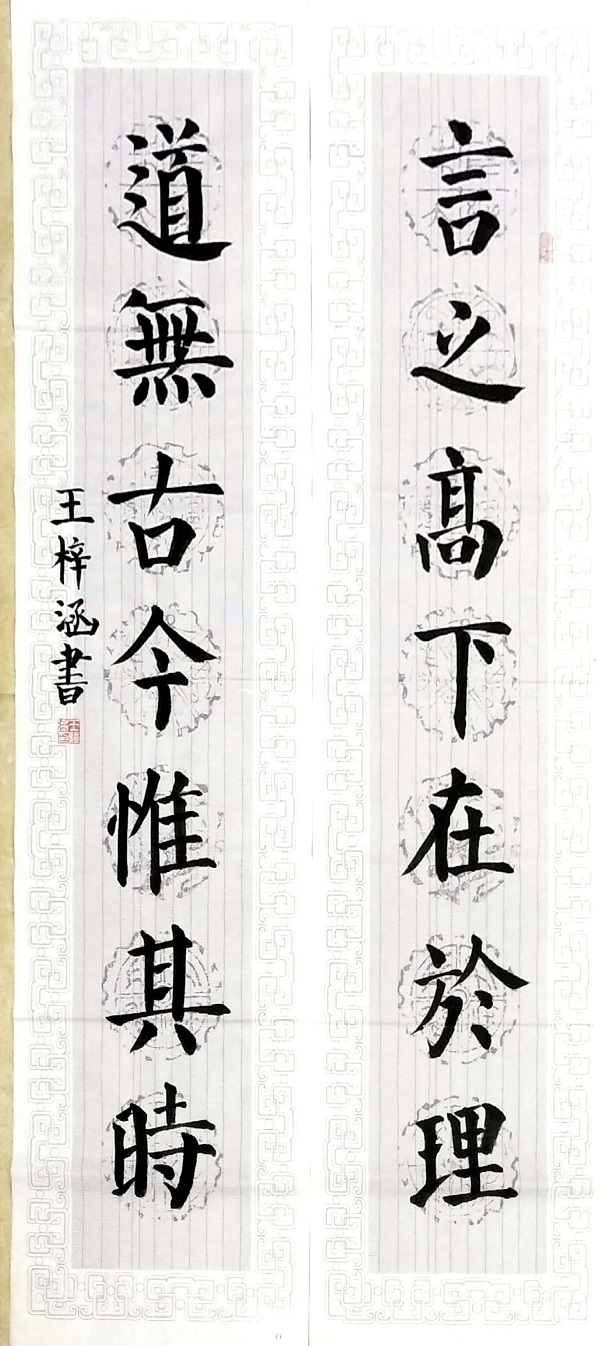 言之高下在於理
道無古今惟其時
王梓涵書